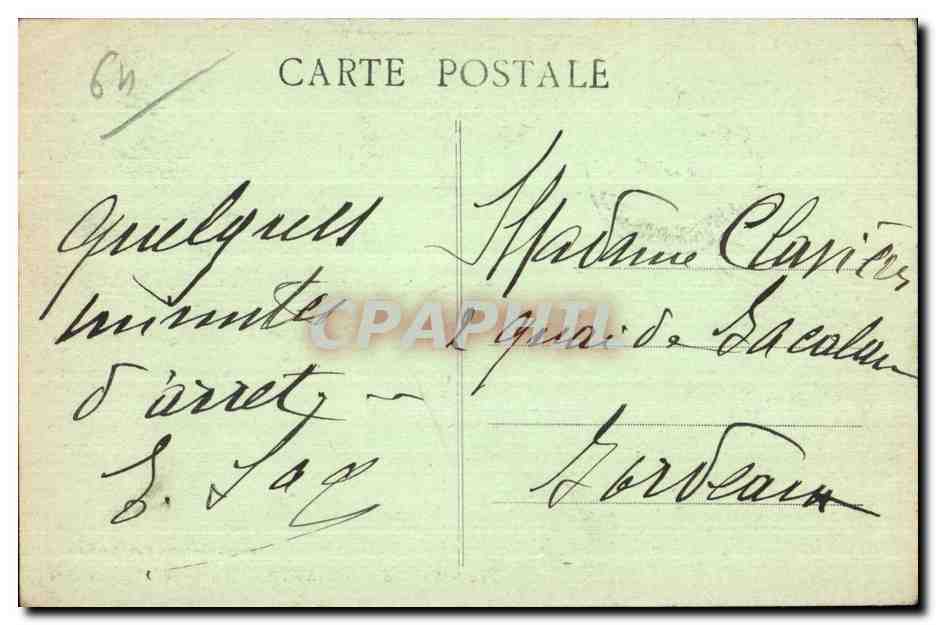 64
CARTE POSTALE
Quelques
minutes
d'arret, -
E. Sax
Madame Clavières
2 quai de Bacalan
Bordeaux
CPAPHIL